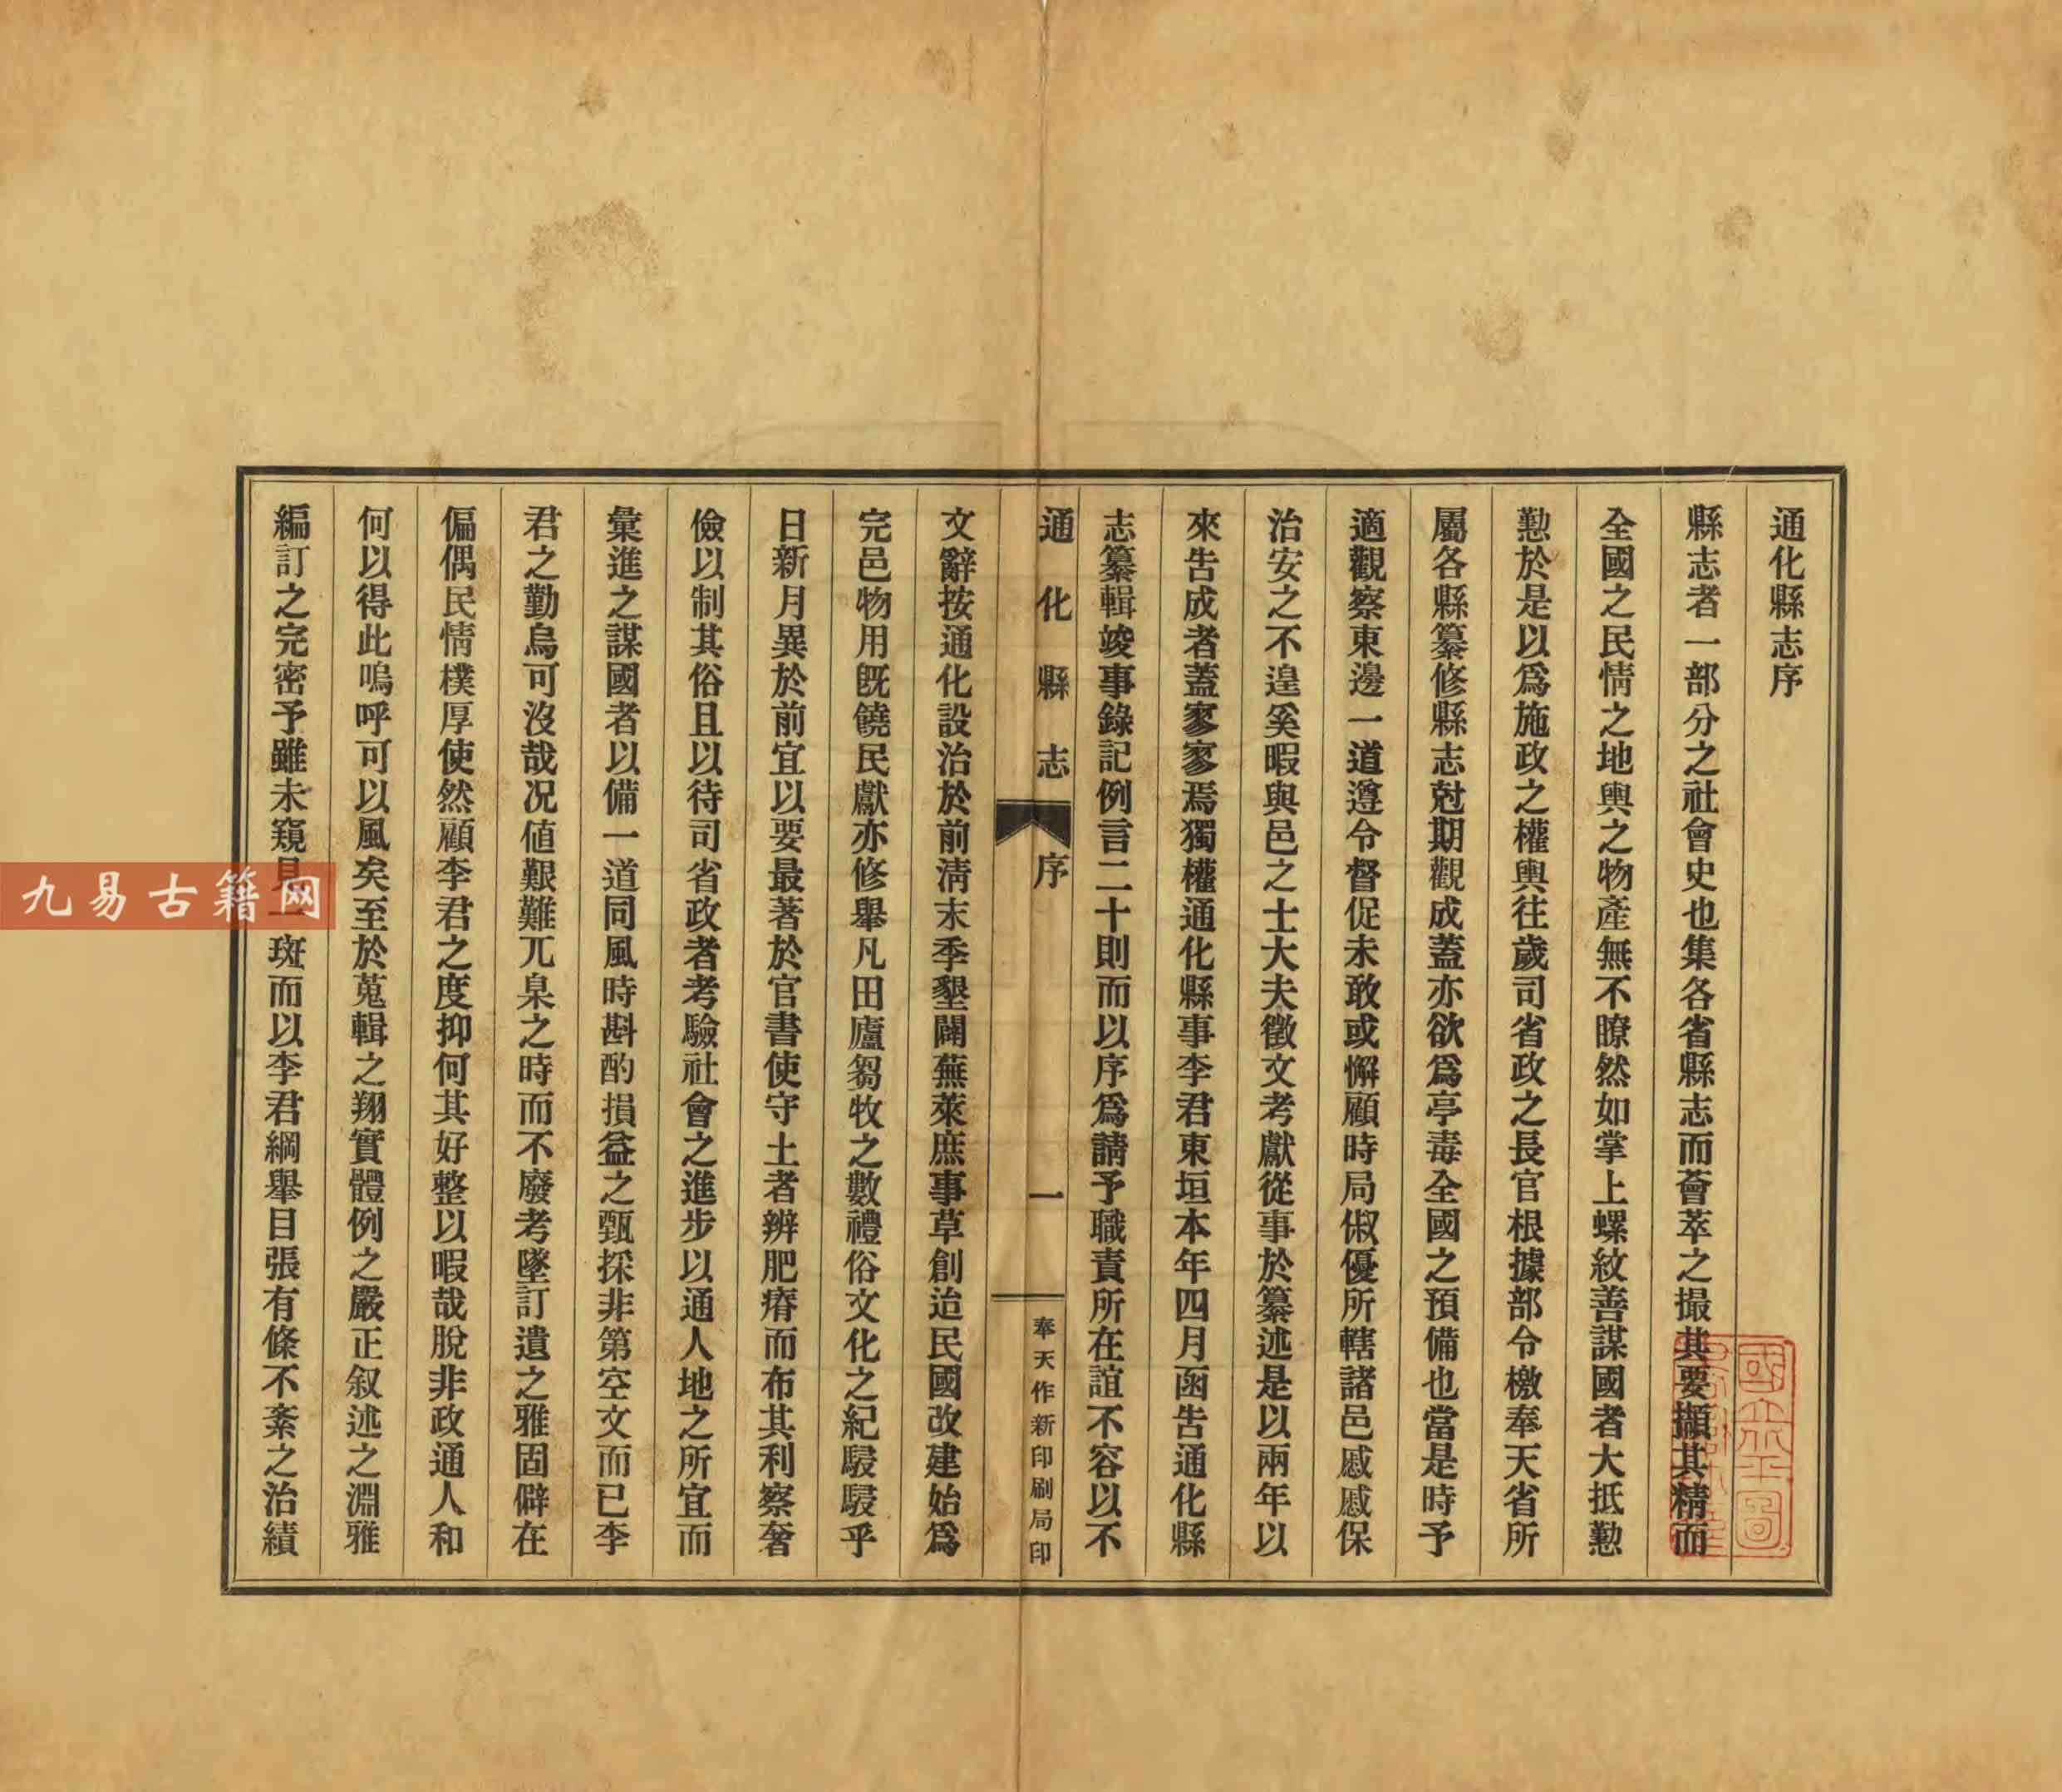 通化縣志序
縣志者一部分之社會史也集各省縣志而薈萃之撮其要擷其精而
全國之民情之地輿之物產無不瞭然如掌上螺紋善謀國者大抵懃
懃於是以爲施政之權輿往歲司省政之長官根據部令檄奉天省所
屬各縣纂修縣志尅期觀成蓋亦欲爲亭毒全國之預備也當是時予
適觀察東邊一道遵令督促未敢或懈顧時局俶優所轄諸邑慼慼保
治安之不遑奚暇與邑之士大夫徵文考獻從事於纂述是以兩年以
來吿成者蓋寥寥焉獨權通化縣事李君東垣本年四月函吿通化縣
志纂輯竣事錄記例言二十則而以序爲請予職責所在誼不容以不
通化縣志
序
一
奉天作新印刷局印
文辭按通化設治於前淸末季墾闢蕪萊庶事草創迨民國改建始爲
完邑物用旣饒民獻亦修舉凡田廬芻牧之數禮俗文化之紀駸駸乎
日新月異於前宜以要最著於官書使守土者辨肥瘠而布其利察奢
儉以制其俗且以待司省政者考驗社會之進步以通人地之所宜而
彙進之謀國者以備一道同風時斟酌損益之甄採非第空文而已李
君之勤烏可沒哉況値艱難兀臬之時而不廢考墜訂遺之雅固僻在
偏偶民情樸厚使然顧李君之度抑何其好整以暇哉脫非政通人和
何以得此嗚呼可以風矣至於蒐輯之翔實體例之嚴正叙述之淵雅
編訂之完密予雖未窺見一斑而以李君綱舉目張有條不紊之治績
九易古籍网